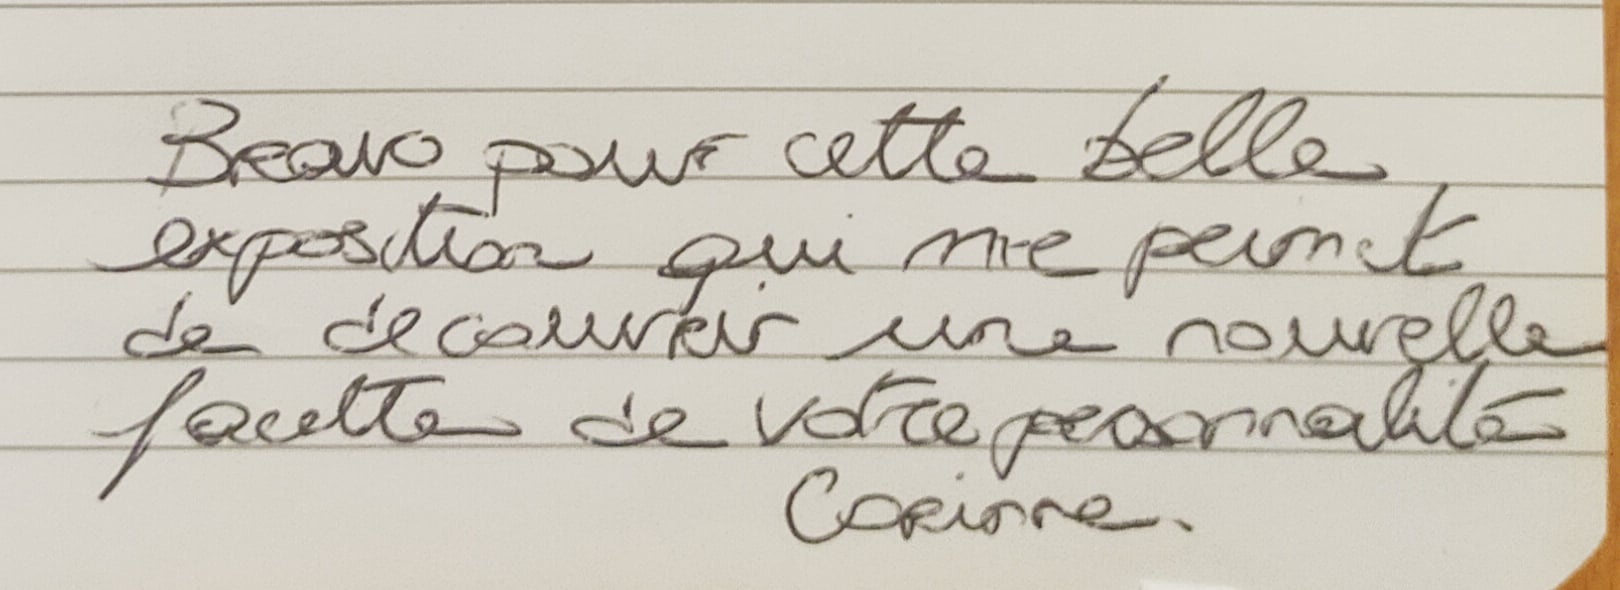 Bravo pour cette belle
exposition qui me permet
de decouvrir une nouvelle
facette de votre personnalité
Corinne.